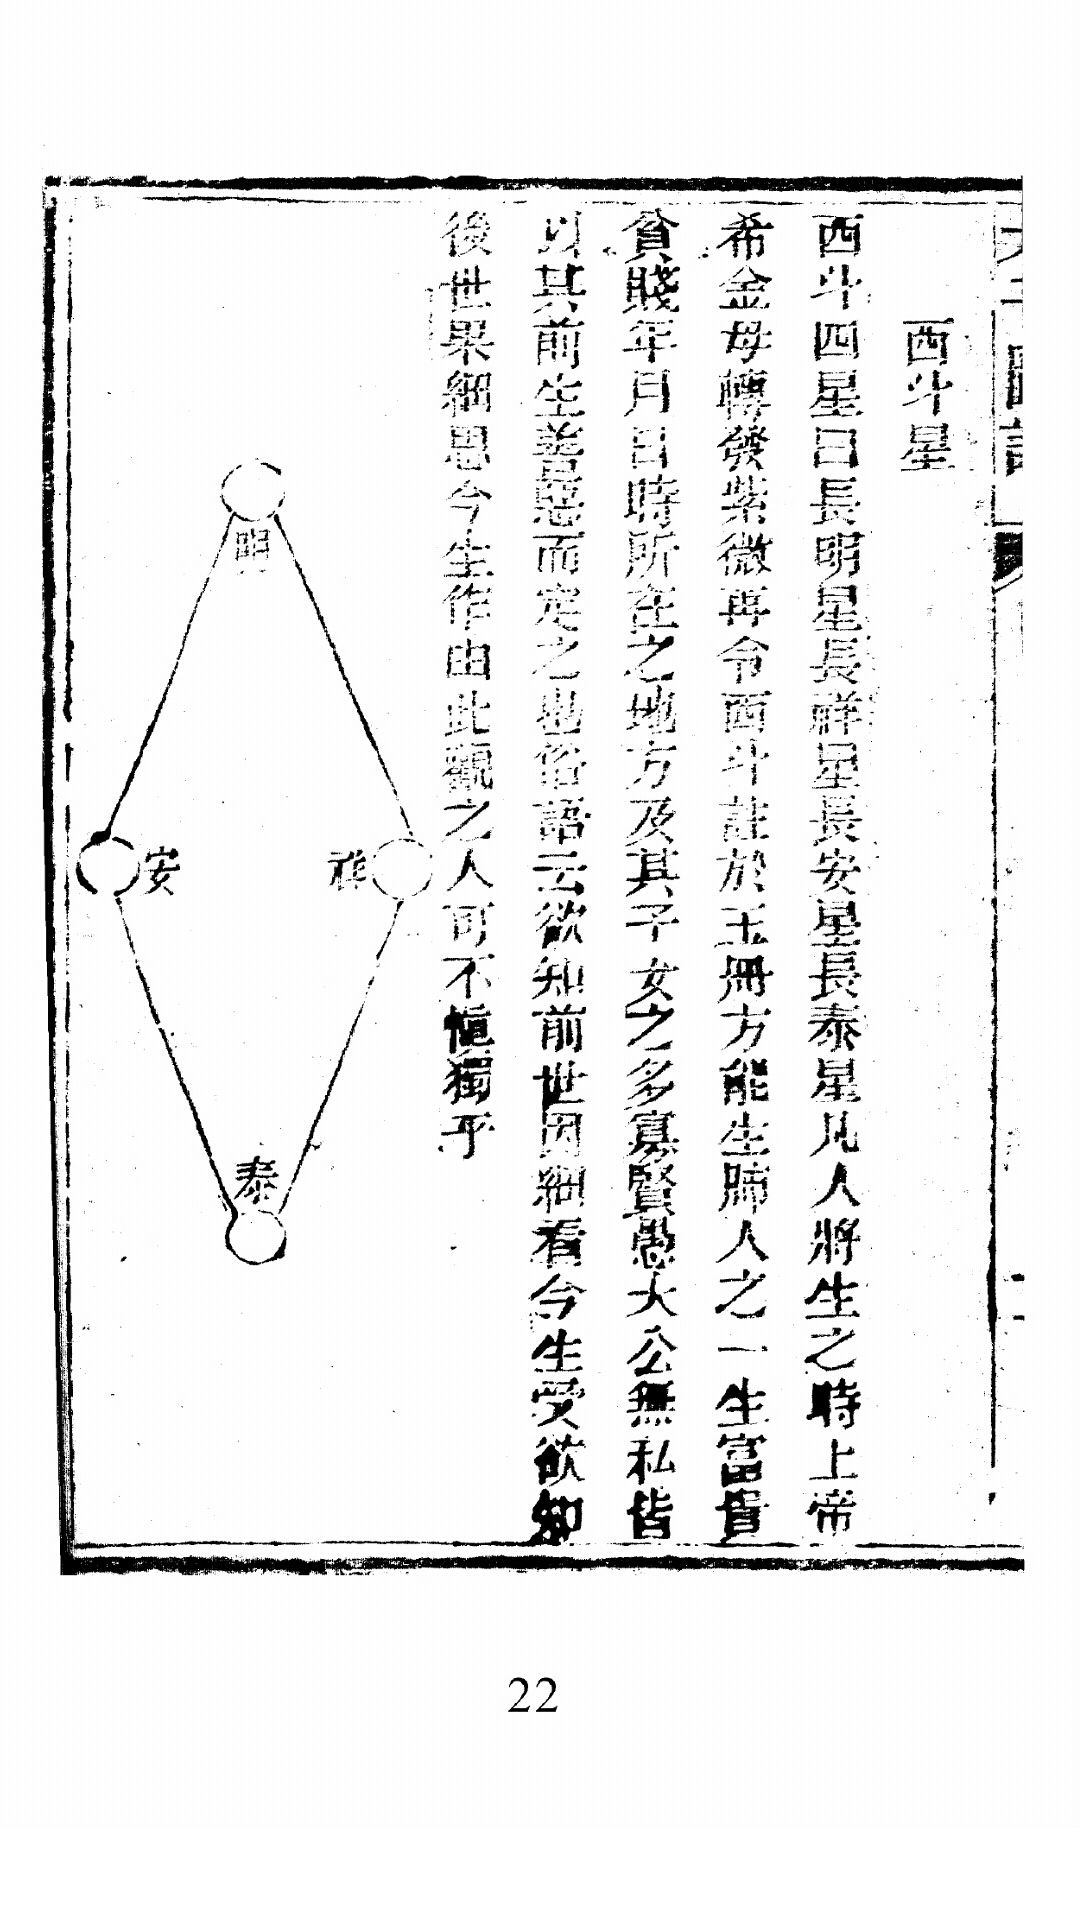 西斗星
西斗四星曰長明星長祥星長安星長泰星凡人將生之時上帝
希金母轉發紫微再令西斗註於玉冊方能生肺人之一生富貴
貧賤年月日時所在之地方及其子女之多寡賢愚大公無私皆
以其前生善惡而定之也俗語云欲知前世因細看今生受欲知
後世果細思今生作由此觀之人可不愼獨乎
明
祥
安
泰
22